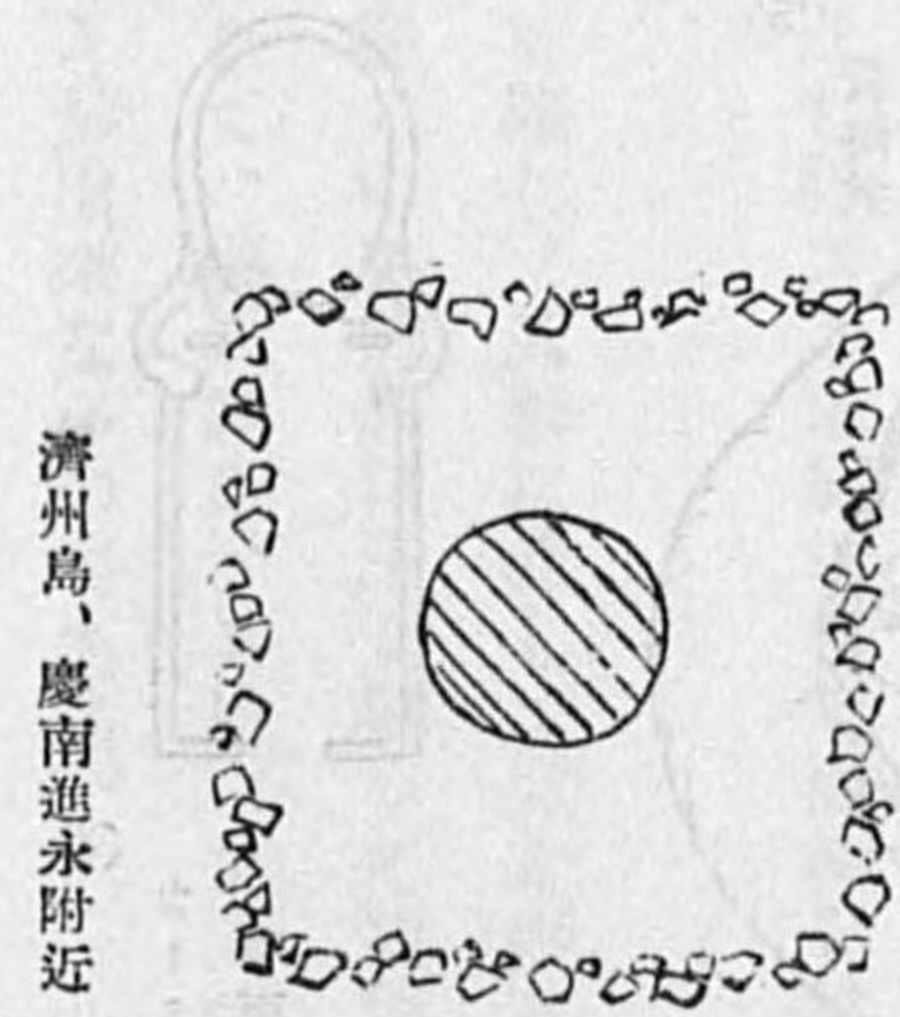 濟州島、慶南進永附近